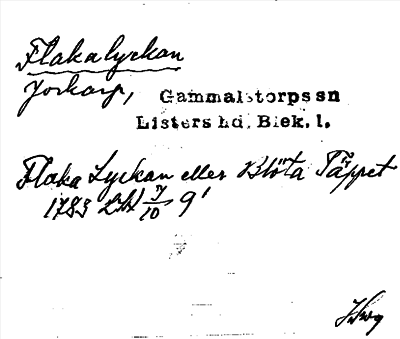 Flakalyckan
Jorkarp, Gammalstorps sn
Listers hd, Blek. l.
Flaka Lyckan eller Blöta Täppet
1783 7/10 9'